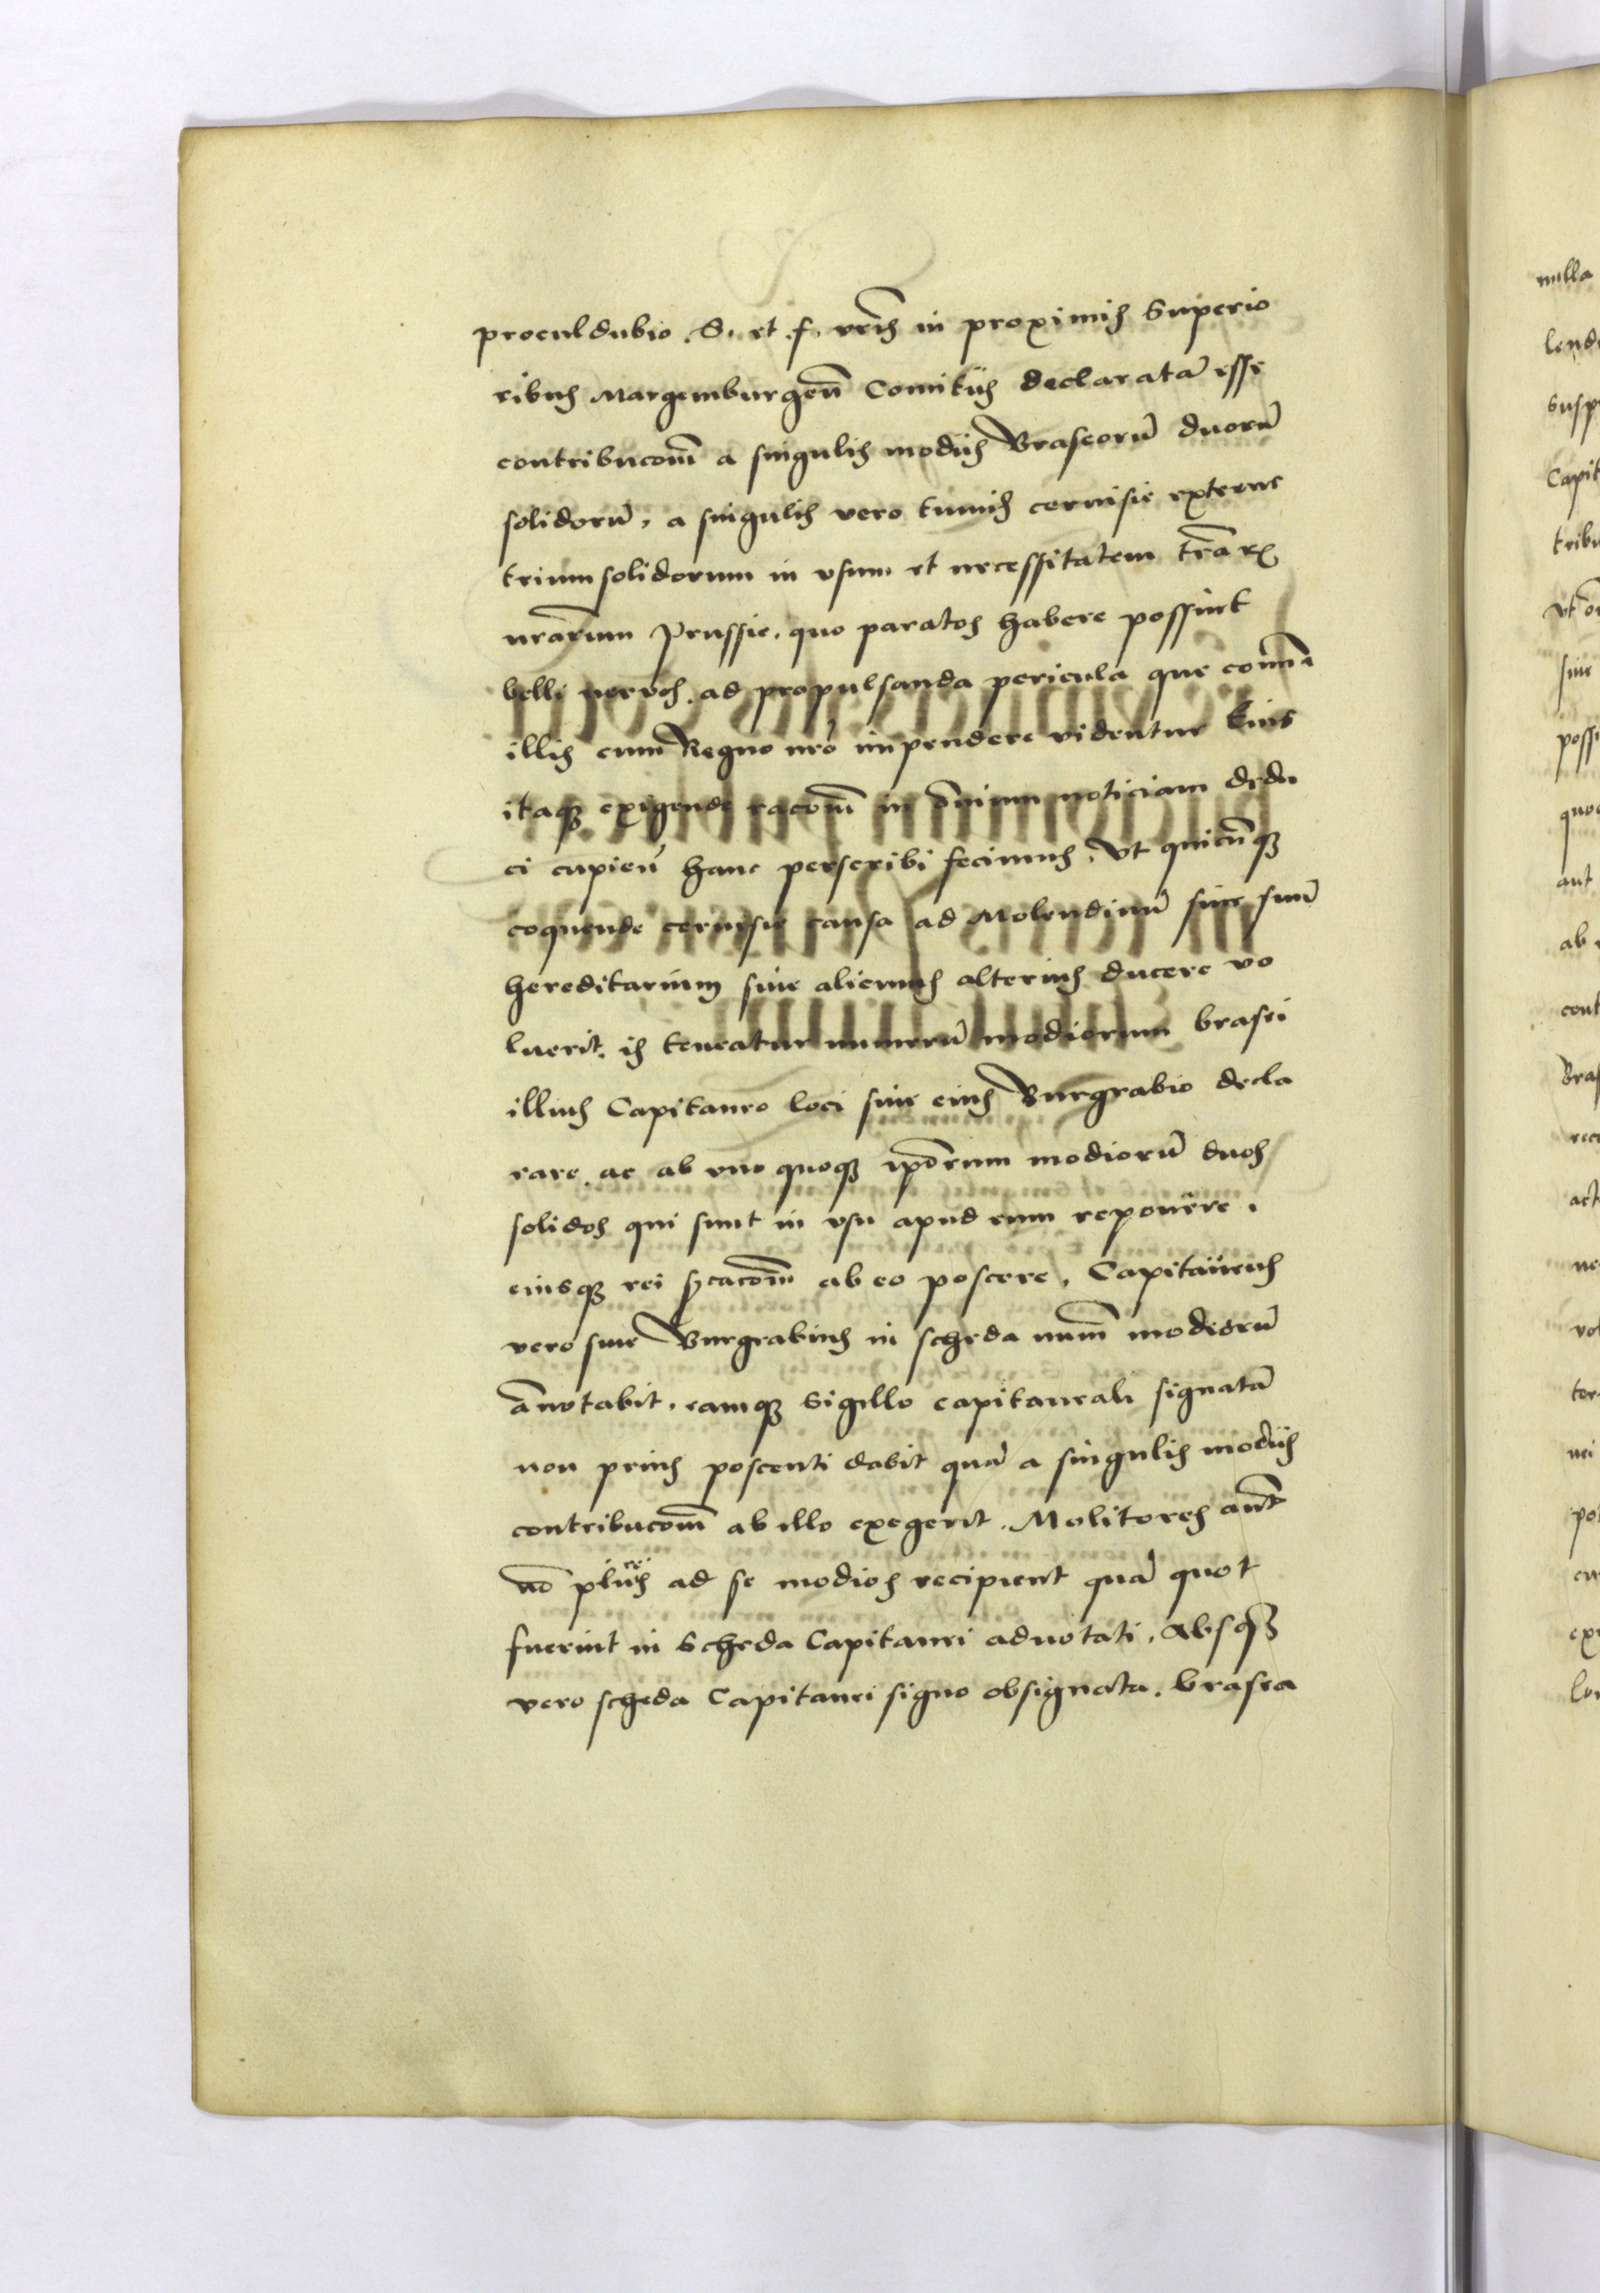 proculdubio .S. et .f. vrīs in proximis Superio
ribus Margemburgeñ Comitiis declaratā esse
contribucoñ a singulis modiis Braseorū duorū
solidorū, a singulis vero tunnis ceruisie externe
trium solidorum in vsum et necessitatem trārū
nrārum Prussie, quo paratos habere possint
belli nervos, ad propulsanda pericula que comūia
illis cum Regno nrō impendere videntur Eius
itaqȝ exigende racoñ in oīnium noticiam dedu
ci cupieñ hanc perscribi fecimus, Vt quicūqȝ
coquende ceruisie causa ad Molendinū siue suū
hereditarium siue alicuius alterius ducere vo
luerit, is teneatur numerū modiorum brasei
illius Capitaneo loci siue eius Burgrabio decla
rare, ac ab vno quoqȝ ipōrum modiorū duos
solidos qui sunt in vsu apud eum reponere,
eiusqȝ rei ab eo poscere, Capitaneus
vero siue Burgrabius in scheda numū modiorū
ānotabit, eamqȝ sigillo capitaneali signatā
non prius poscenti dabit quā a singulis modiis
contribucoñ ab illo exegerit. Molitores aūt
nō plures ad se modios recipient quā quot
fuerint in Scheda Capitanei adnotati, Absqȝ
vero scheda Capitanei signo obsignata, brasea
nulla
Capit
tribu
siue
aut
ab
Bras